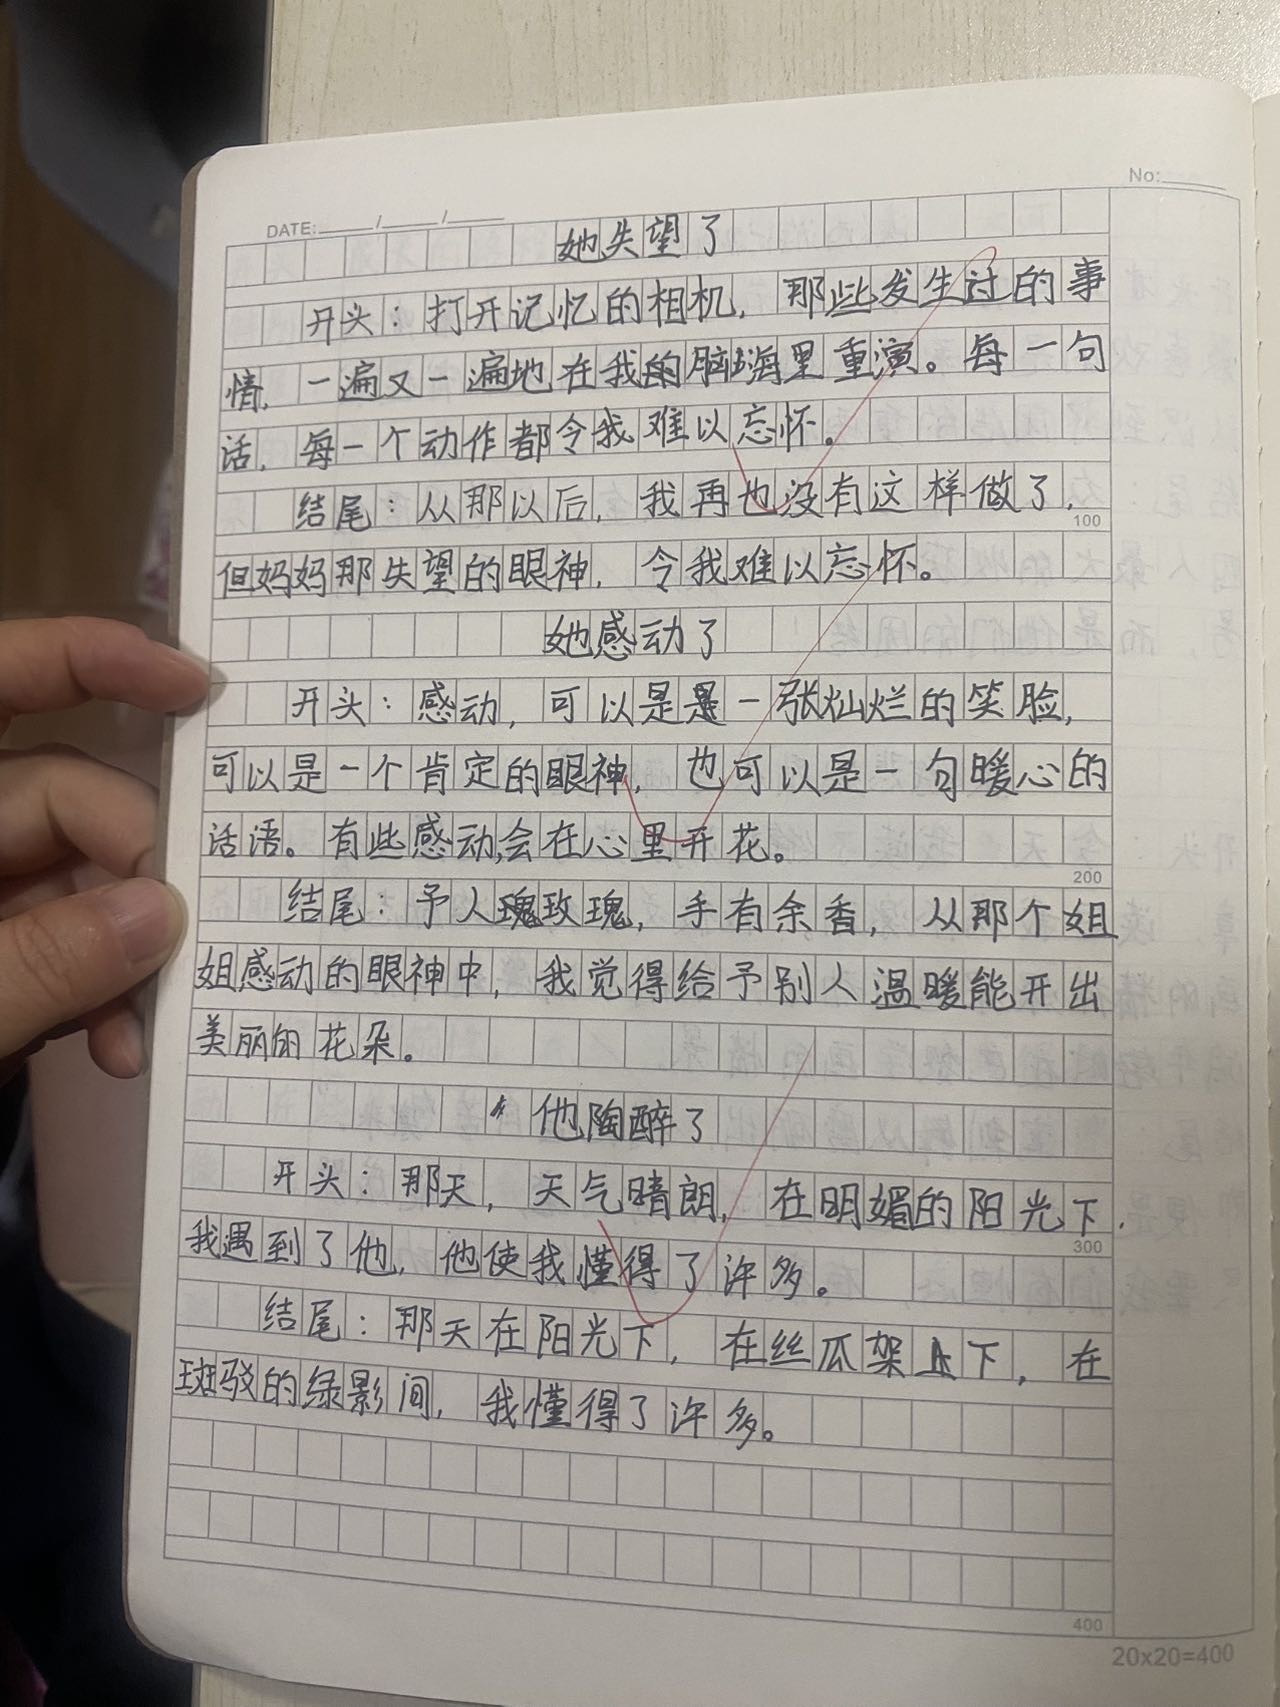 No:
DATE: / /
她失望了
开头：打开记忆的相机，那些发生过的事
情，一遍又一遍地在我的脑海里重演。每一句
话，每一个动作都令我难以忘怀。
结尾：从那以后，我再也没有这样做了，
100
但妈妈那失望的眼神，令我难以忘怀。
她感动了
开头：感动，可以是是一张灿烂的笑脸，
可以是一个肯定的眼神，也可以是一句暖心的
话语。有些感动，会在心里开花。
200
结尾：予人瑰玫瑰，手有余香，从那个姐
姐感动的眼神中，我觉得给予别人温暖能开出
美丽的花朵。
他陶醉了
开头：那天，天气晴朗，在明媚的阳光下，
300
我遇到了他，他使我懂得了许多。
结尾：那天在阳光下，在丝瓜架上下，在
斑驳的绿影间，我懂得了许多。
400
20x20=400